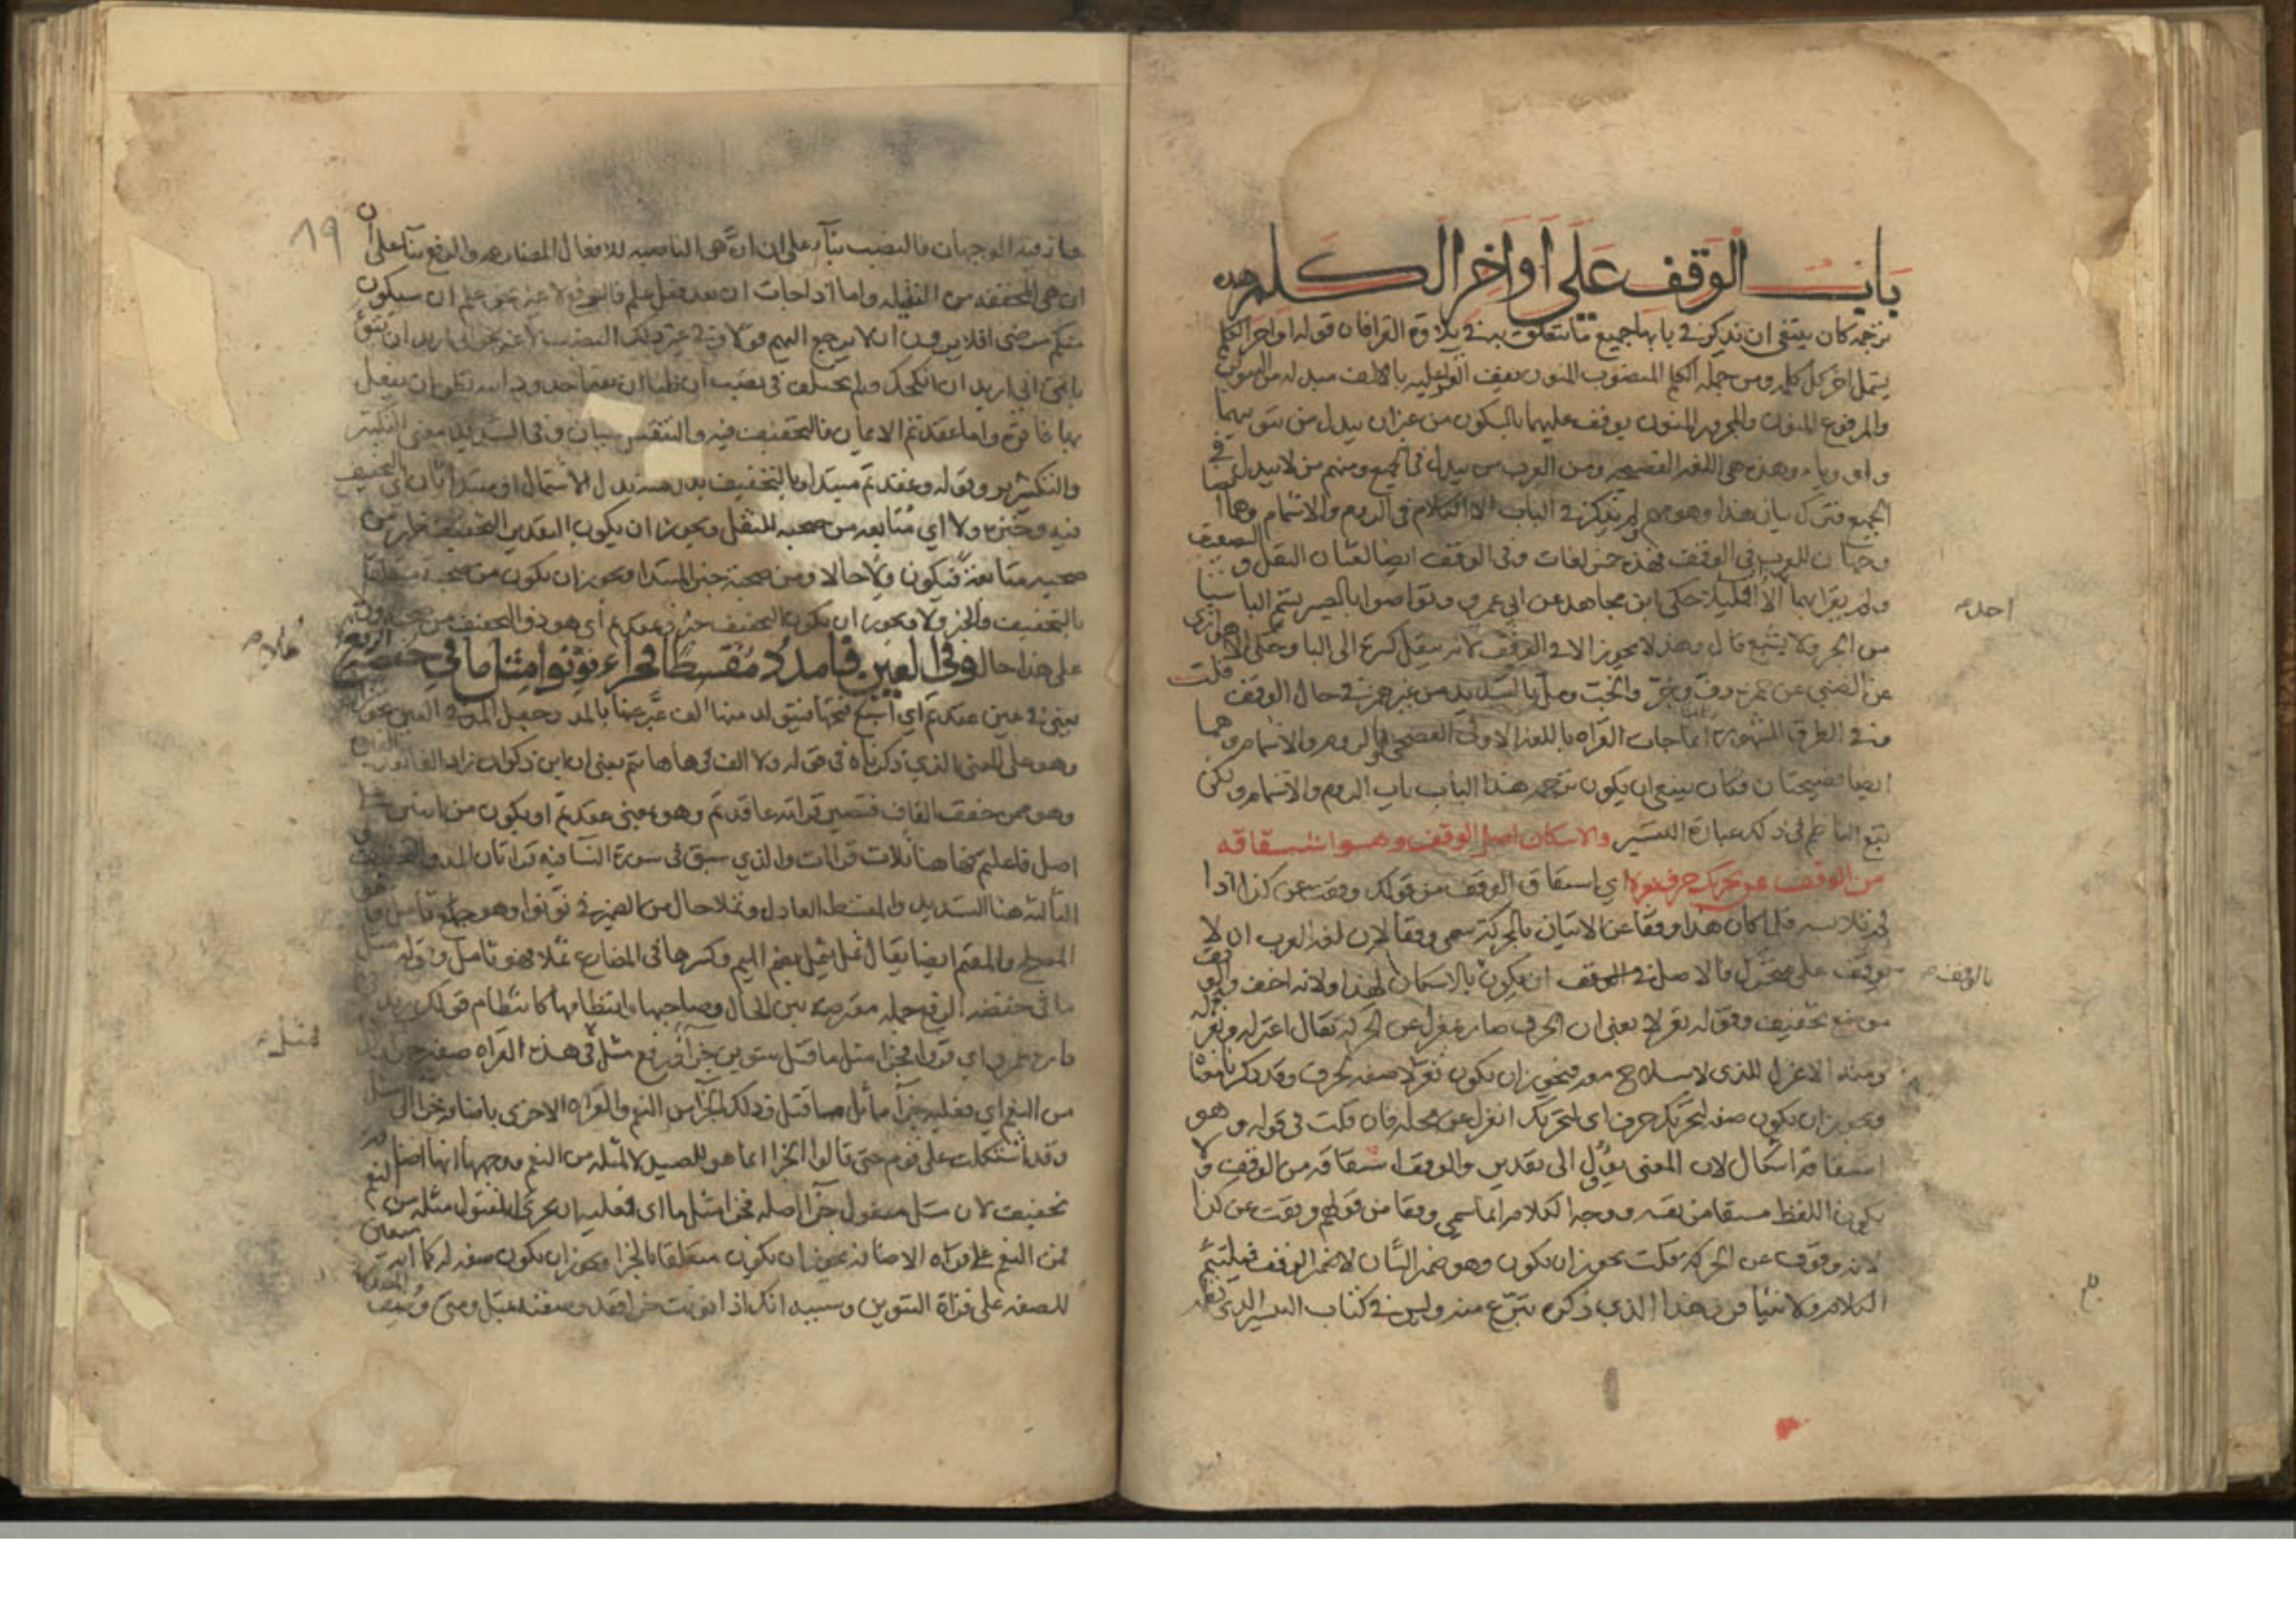 باب الوقف على أواخر الكلم هذه
ترجمة كان ينبغي ان يذكر في بابها جميع ما يتعلق به في تلاوة القرا فان قوله اواخر الكلم
يشمل اخر كل كلمه ومن جملة الكلم المنصوب المنون يوقف عليه بالالف مبدله من التنوين
والمرفوع المنون والمجرور المنون يوقف عليهما بالسكون من غير ان يبدل من تنوينهما
واو وياء وهذه هي اللغة الفصيحه ومن العرب من يبدل في الجميع ومنهم من لا يبدل في
الجميع فترك بيان هذا وهو مهم لم يذكر في الباب الا الكلام في الروم والاشمام وهما ايضا
وجهان للعرب في الوقف فهذه خمس لغات وفى الوقف ايضا لغتان النقل والتضعيف
ولم يقرا بهما الا قليلا حكى ابن مجاهد عن ابي عمرو وتواصوا بالصبر يشم الباء شيئا
احد
من الجر ولا يشبع قال وهذا لا يجوز الا في الوقف لانه ينقل كسرة الى الباء وحكى الاهوازي
عن الضبي عن حمزه دفّ وجزّ والخبّ وملّ بالتشديد من غير همز في حال الوقف قلت
وفي الطرق المشهورة انما جات القراه باللغة الاولى الفصحى وبالروم والاشمام وهما
ايضا فصيحتان فكان ينبغي ان يكون ترجمه هذا الباب باب الروم والاشمام ولكن
تبع الناظم في ذلك عبارة التيسير والاسكان اصل الوقف وهو اشتقاقه
من الوقف عن تحريك حرف تعزلا اي اشتقاق الوقف من قولك وقفت عن كذا اذا
لم تلابسه فلما كان هذا وقفا عن الاتيان بالحركة سمي وقفا لان لغة العرب ان لا
يوقف على متحرك فالاصل في الوقف ان يكون بالاسكان لهذا ولانه اخف والوقف
بالوقف
موضع تخفيف وقوله تعزلا يعنى ان الحرف صار بمعزل عن الحركه يقال اعتزله وتعزله
ومنه الاعزل للذى لا سلاح معه فيجوز ان يكون تعزلا صفه لحرف وقد ذكرنا هذا
ويجوز ان يكون صفه لتحريك حرف اى لتحريك انعزل عن محله فان قلت في قوله وهو
اشتقاقه اشكال لان المعنى يؤل الى تقدير والوقف اشتقاقه من الوقف ولا
يكون اللفظ مشتقا من نفسه ووجه الكلام انما سمي وقفا من قولهم وقفت عن كذا
لانه وقوف عن الحركة قلت يجوز ان يكون وهو ضمير الشان لا ضمير الوقف فيلتئم
الكلام ولا شيا من هذا الذي ذكره تبرع منه وليس في كتاب التيسير الذي نظمه
19
جاز فيه الوجهان فالنصب بناء على ان انْ هى الناصبه للافعال المضارعه والرفع بنا على ان
ان هي المخففه من الثقيله واما اذا جات ان بعد فعل علم فالرفع لا غير نحو علم ان سيكون
منكم مرضى افلا يرون ان لا يرجع اليهم قولا وفي غير ذلك النصب لا غير نحو اني اريد ان تبوء
باثمي اني اريد ان انكحك ولم يختلف في نصب ان ظنا ان يقيما حدود الله تظن ان يفعل
بها فاقرة واما عقدتم الايمان فالتخفيف فيه والتشديد لغتان وفى التشديد معنى التكثير
والتكرير وقوله وعقدتم مبتدا وبالتخفيف بدل منه بدل الاشتمال او مبتدا ثان اي التخفيف
فيه وخبره ولا اي متابعه من صحبه للنقل ويجوز ان يكون التقدير التخفيف فيه من
صحبه متابعة فيكون ولا حالا ومن صحبة خبر المبتدا ويجوز ان يكون من صحبة متعلقا
بالتخفيف والخبر ولا ويجوز ان يكون التخفيف خبر عقدتم أي هو ذو التخفيف من صحبه ولا
على هذا حال وفي العين فامدد مقسطا فجزاء نونوا مثل ما في خفضه الرفع
ثملا
يعني في عين عقدتم اي اشبع فتحها فيتولد منها الف عبر عنها بالمد وجعل المد في العين تجوزا
وهو على المعنى الذي ذكرناه في قوله ولا الف في هاها انتم يعني ان ابن ذكوان زاد الفا
وهو ممن خفف القاف فتصير قراته عاقدتم وهو بمعنى عقدتم او يكون من اثنين
اصل فاعلتم كفاها هنا ثلاث قرات والذي سبق في سورة النسا فيه قراتان المد والتخفيف
الثالثة هنا التشديد والمقسط العادل وثملا حال من الضمير في نونوا وهو جمع ثامل
المصلح والمقيم ايضا يقال ثمل يثمل بضم الميم وكسرها في المضارع ثملا فهو ثامل وقوله مثل
ما في خفضه الرفع جمله معترضة بين الحال وصاحبها وانتظامها كانتظام قولك زيد
مثل
من النعم اي فعليه جزآ مماثل ما قتل وذلك الجزآ من النعم والقراه الاخرى باضافة جزا الى مثل
وقد اشكلت على قوم حتى قالوا الجزا انما هو للصيد لا لمثله من النعم ووجهها انها اضافة
تخفيف لان مثل مفعول جزآ اصله فجزا مثل ما اى فعليه ان يجزى المقتول مثله من النعم
فمن النعم على قراه الاضافه يجوز ان يكون متعلقا بالجزا ويجوز ان يكون صفه له كما انه متعين
للصفه على قراة التنوين وسببه انك اذا نونت جزا فقد وصفته بمثل ومتى وصف المصدر